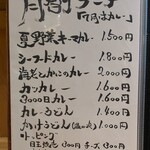 月間ランチ
夏野菜キーマカレー 1.500円
シーフードカレー 1.800円
海老とかにのカレー 2.000円
カツカレー 1.600円
3000日カレー 1.600円
カレーうどん 1.400円
かけうどん 1.000円
トッピング
目玉焼 300円 チーズ 300円